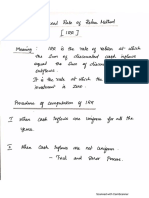 Internal Rate of Return Method
[IRR]
Meaning : IRR is the rate of return at which
the Sum of discounted cash inflows
equal the Sum of discounted cash
outflows.
It is the rate at which the
investment is Zero.
Procedures of computation of IRR
I When cash Inflows are uniform for all the
years.
II When cash Inflows are not uniform
- Trail and Error Process.
Scanned with CamScanner